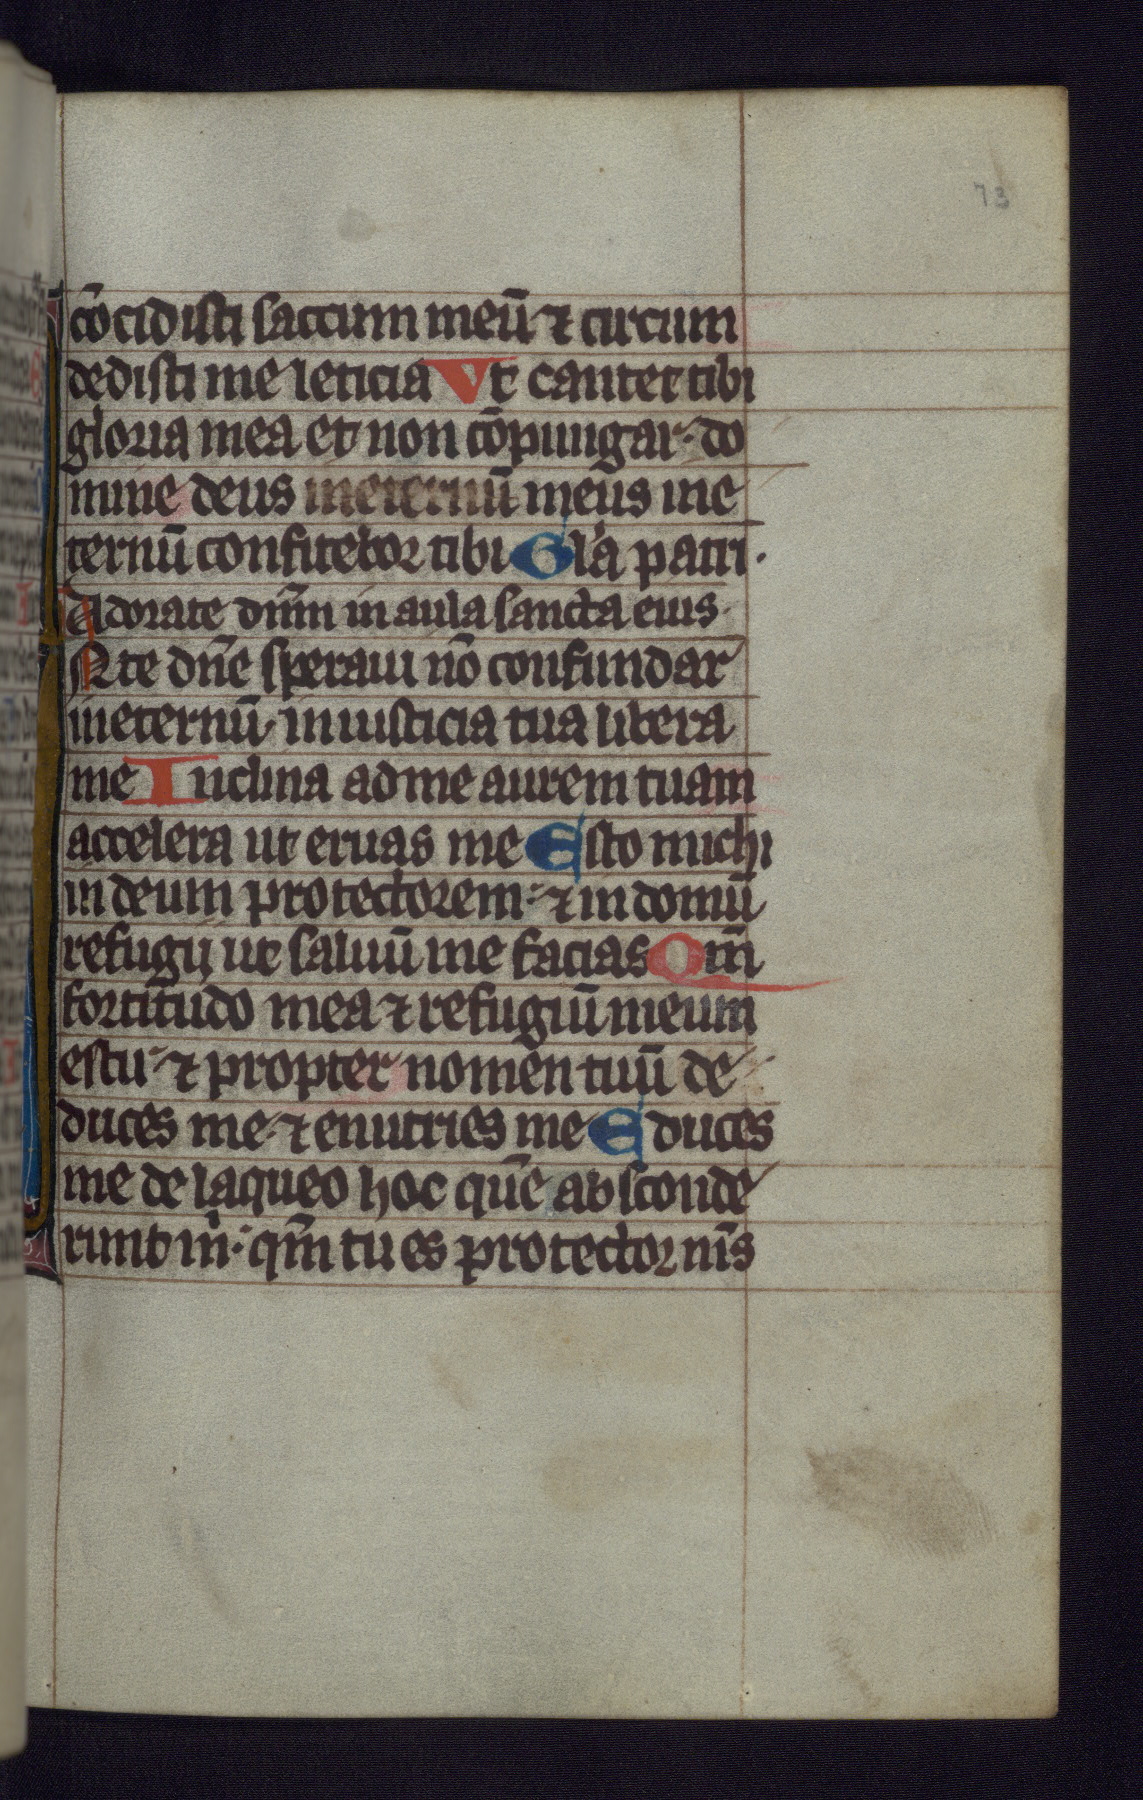 73
cōcidisti saccum meū ⁊ circum
dedisti me leticia Vt cantet tibi
gloria mea et non cōpungar · do
mine deus ineternū meus ine
ternū confitebor tibi Gl'a patri ·
Adorate dn̄m in aula sancta eius ·
N te dn̄e speraui nō confundar
ineternū · in iusticia tua libera
me Inclina ad me aurem tuam
accelera ut eruas me Esto michi
in deum protectorem · ⁊ in domū
refugij ut saluū me facias Qm̄
fortitudo mea ⁊ refugiū meum
es tu · ⁊ propter nomen tuū de
duces me · ⁊ enutries me Educes
me de laqueo hoc quē absconde
runt m̄ · qm̄ tu es protector m̄s